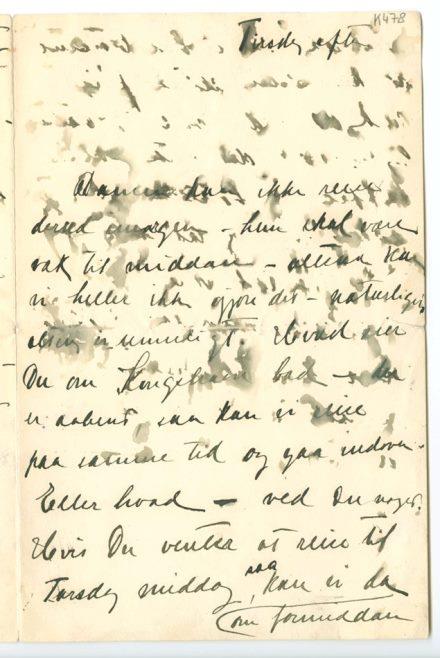 K478
Tirsdag efter
kan ikke reise
derned imorgen – hun skal være
vak til middan – altsaa kan
vi heller ikke gjøre det – naturligvis
Hvad sier
Du om Kongshavn bad – det
er aabent, saa kan vi reise
paa samme tid og gaa indover.
Eller hvad – ved Du noget?
Hvis Du venter at reise til
Torsdag middag, saa kan vi da
om formiddan